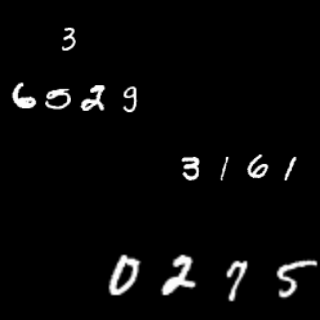 3
6529
3161
0275